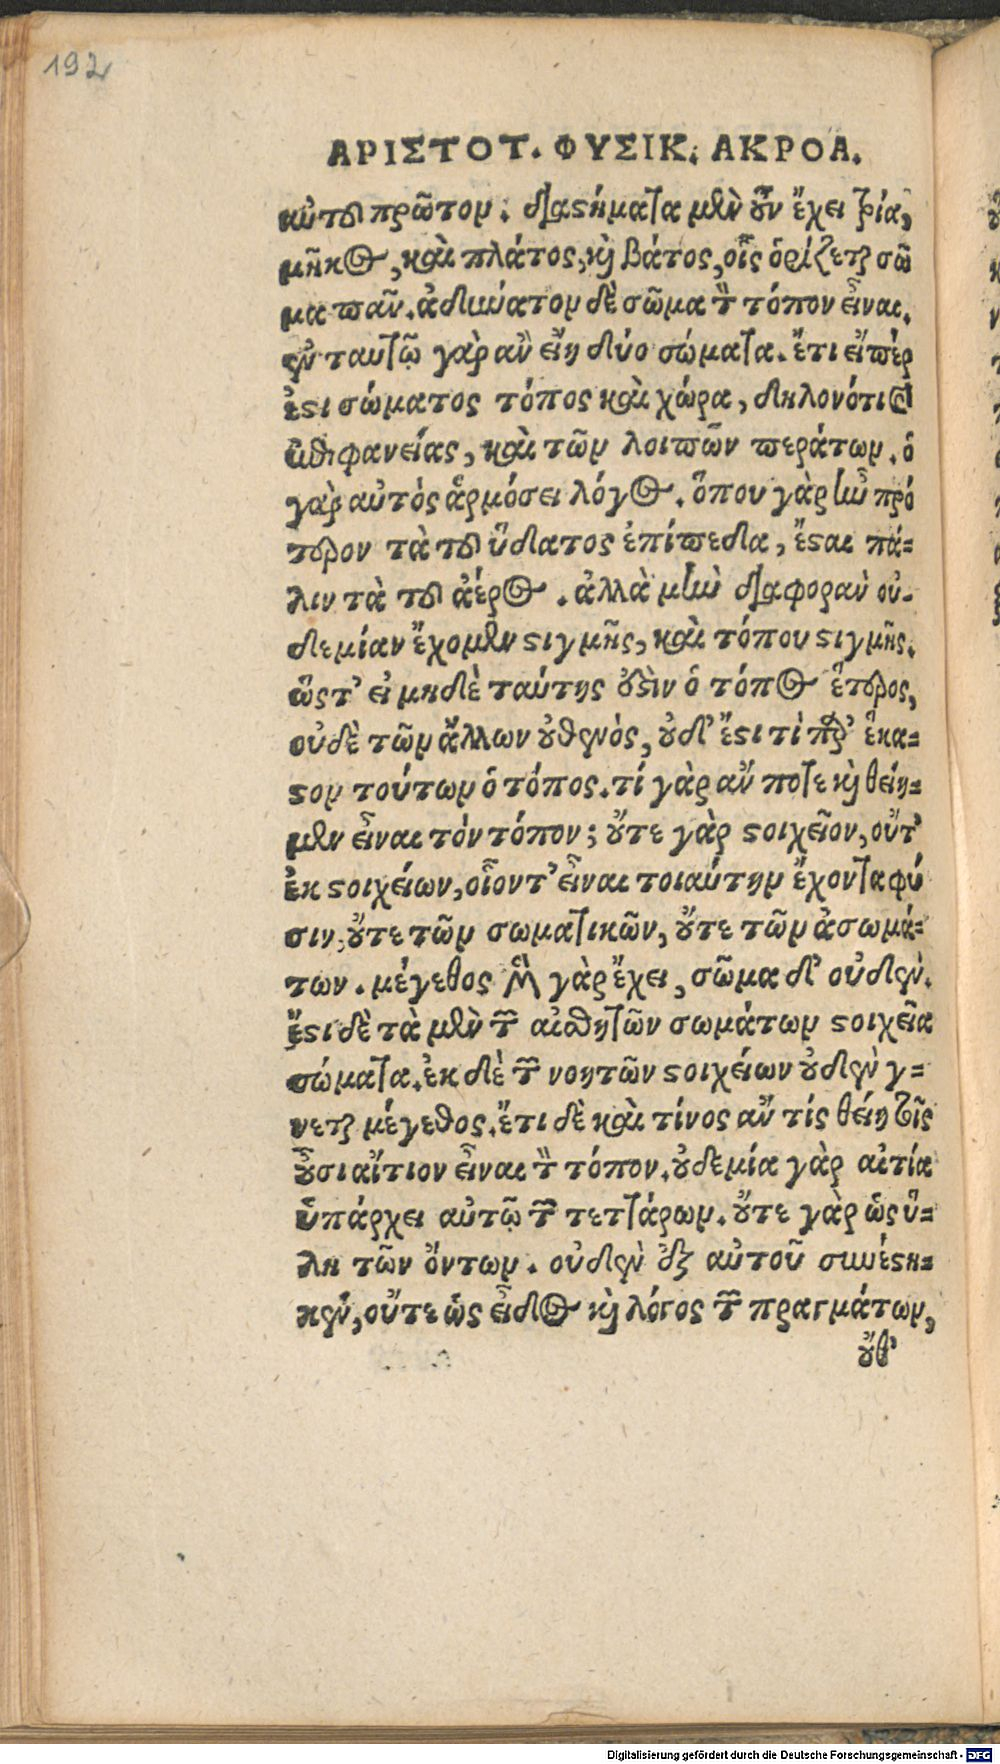 192
ΑΡΙΣΤΟΤ. ΦΥΣΙΚ. ΑΚΡΟΑ.
αὐτοῦ πρῶτον. διαστήματα μὲν οὖν ἔχει τρία,
μῆκος, καὶ πλάτος, καὶ βάτος, οἷς ὁρίζεται σῶ
μα παῦ. ἀδιωύατον δὲ σῶμα τὸν τόπον εἶναι.
ἐν ταυτῷ γὰρ ἂν εἴη δύο σώματα. ἔτι εἴπερ
ἐστι σώματος τόπος καὶ χώρα, δηλονότι καὶ
ἐπιφανείας, καὶ τῶν λοιπῶν περάτων. ὁ
γὰρ αὐτὸς ἁρμόσει λόγος. ὅπου γὰρ ἦν πρό
τερον τὰ τοῦ ὕδατος ἐπίπεδα, ἔσται πά=
λιν τὰ τοῦ ἀέρος. ἀλλὰ μὴν διαφορὰν οὐ-
δεμίαν ἔχομεν στιγμῆς, καὶ τόπου στιγμῆς.
ὥστ᾽ εἰ μηδὲ ταύτης οὐδὲν ὁ τόπος ἕτερος,
οὐδὲ τῶν ἄλλων οὐθενὸς, οὐδ᾽ ἔστι τὶ παρ᾽ ἕκα=
στον τούτων ὁ τόπος. τί γὰρ ἄν ποτε καὶ θείη=
μεν εἶναι τὸν τόπον; οὔτε γὰρ στοιχεῖον, οὔτ᾽
ἐκ στοιχείων, οἷοντ᾽ εἶναι τοιαύτην ἔχοντα φύ
σιν, οὔτε τῶν σωματικῶν, οὔτε τῶν ἀσωμά=
των. μέγεθος μὲν γὰρ ἔχει, σῶμα δ᾽ οὐδέν.
ἔστι δὲ τὰ μὲν τῶν αἰσθητῶν σωμάτων στοιχεῖα
σώματα. ἐκ δὲ τῶν νοητῶν στοιχείων οὐδὲν γ=
νεται μέγεθος. ἔτι δὲ καὶ τίνος ἄν τίς θείη τοῖς
οὖσι αἴτιον εἶναι τὸν τόπον. οὐδεμία γὰρ αἰτία
ὑπάρχει αὐτῷ τῶν τετ]άρων. οὔτε γὰρ ὡς ὕ=
λη τῶν ὄντων. οὐδὲν ἐξ αὐτοῦ συνέστη=
κεν, οὔτε ὡς εἶδος καὶ λόγος τῶν πραγμάτων,
οὔθ᾽
Digitalisierung gefördert durch die Deutsche Forschungsgemeinschaft - DFG